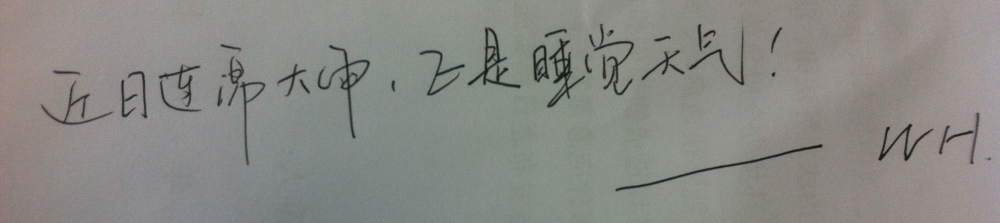 近日连席大雨，正是睡觉天气！
—— WH.